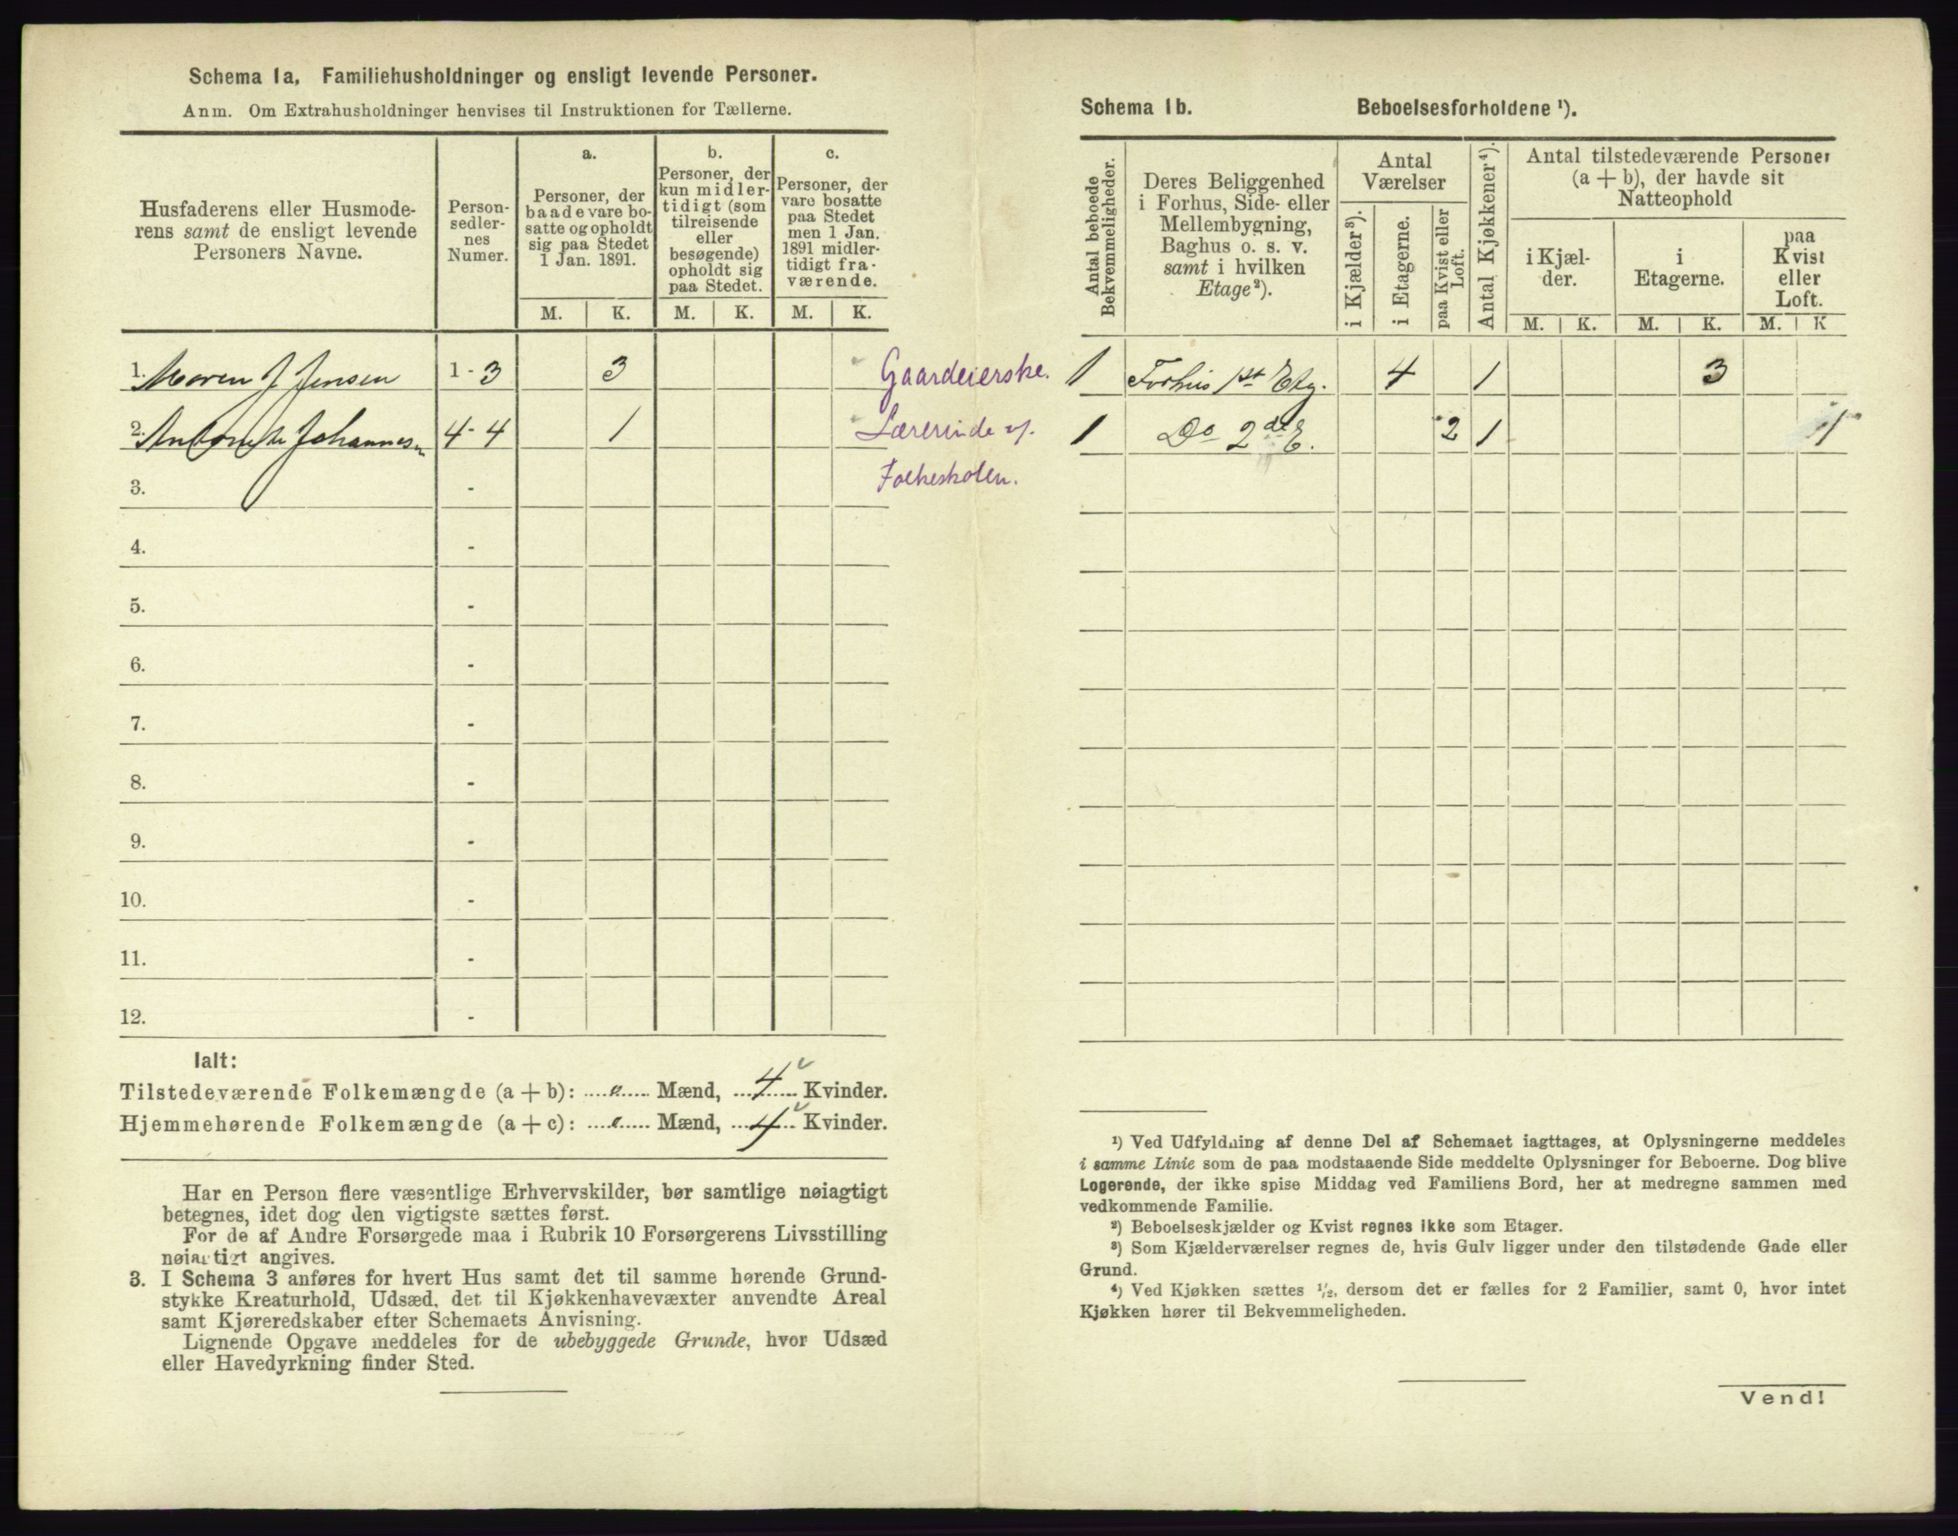 Schema 1a, Familiehusholdninger og ensligt levende Personer.
Anm. Om Extrahusholdninger henvises til Instruktionen for Tællerne.
Husfaderens eller Husmode-
rens samt de ensligt levende
Personers Navne.
Person-
sedler-
nes
Numer.
a.
Personer, der
baade vare bo-
satte og opholdt
sig paa Stedet
1 Jan. 1891.
b.
Personer, der
kun midler-
tidigt (som
tilreisende
eller
besøgende)
opholdt sig
paa Stedet.
c.
Personer, der
vare bosatte
paa Stedet
men 1 Jan.
1891 midler-
tidigt fra-
værende.
M. K. M. K. M. K.
1. Maren J Jensen 1 - 3 3 Gaardeierske.
2. Antonette Johannesn 4 - 4 1 Lærerinde v.
3. - Folkeskolen.
4. -
5. -
6. -
7. -
8. -
9. -
10. -
11. -
12. -
Ialt:
Tilstedeværende Folkemængde (a + b): ....0.... Mænd, ....4.... Kvinder.
Hjemmehørende Folkemængde (a + c): ....0.... Mænd, ....4.... Kvinder.
Har en Person flere væsentlige Erhvervskilder, bør samtlige nøiagtigt
betegnes, idet dog den vigtigste sættes først.
For de af Andre Forsørgede maa i Rubrik 10 Forsørgerens Livsstilling
nøiagtigt angives.
3. I Schema 3 anføres for hvert Hus samt det til samme hørende Grund-
stykke Kreaturhold, Udsæd, det til Kjøkkenhavevæxter anvendte Areal
samt Kjøreredskaber efter Schemaets Anvisning.
Lignende Opgave meddeles for de ubebyggede Grunde, hvor Udsæd
eller Havedyrkning finder Sted.
Schema 1b. Beboelsesforholdene ¹).
Antal beboede
Bekvemmeligheder.
Deres Beliggenhed
i Forhus, Side- eller
Mellembygning,
Baghus o. s. v.
samt i hvilken
Etage²).
Antal
Værelser
i Kjælder³).
i Etagerne.
paa Kvist eller
Loft.
Antal Kjøkkener⁴).
Antal tilstedeværende Personer
(a + b), der havde sit
Natteophold
i Kjæl-
der.
i
Etagerne.
paa
Kvist
eller
Loft.
M. K. M. K. M. K
1 Forhus 1st Etg. 4 1 3
1 Do 2de E. 2 1 1
¹) Ved Udfyldning af denne Del af Schemaet iagttages, at Oplysningerne meddeles
i samme Linie som de paa modstaaende Side meddelte Oplysninger for Beboerne. Dog blive
Logerende, der ikke spise Middag ved Familiens Bord, her at medregne sammen med
vedkommende Familie.
²) Beboelseskjælder og Kvist regnes ikke som Etager.
³) Som Kjælderværelser regnes de, hvis Gulv ligger under den tilstødende Gade eller
Grund.
⁴) Ved Kjøkken sættes ½, dersom det er fælles for 2 Familier, samt 0, hvor intet
Kjøkken hører til Bekvemmeligheden.
Vend!